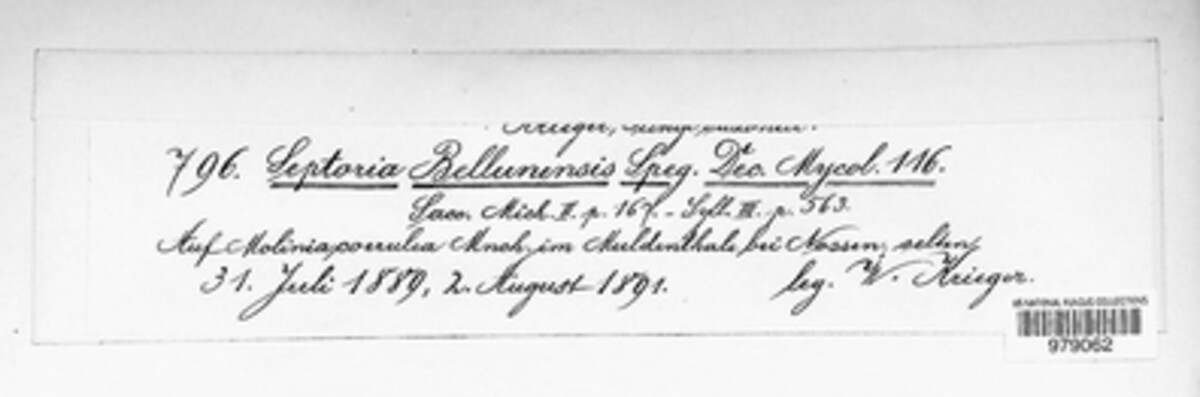 Krieger, fungi saxonici.
796. Septoria Bellunensis Speg. Dec. Mycol. 116.
Sacc. Mich. II. p. 167. - Syll. III. p. 563.
Auf Molinia coerulea Mnch. im Muldenthale bei Nossen, selten
31. Juli 1889, 2. August 1891. leg. W. Krieger.
US NATIONAL FUNGUS COLLECTIONS
979062